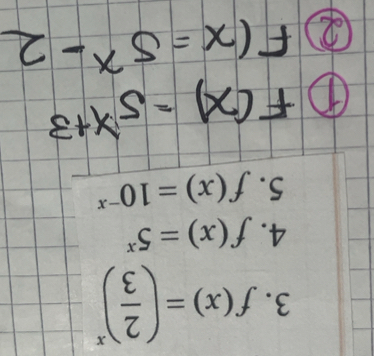 3. f(x) = (2/3)ˣ
4. f(x) = 5ˣ
5. f(x) = 10⁻ˣ
① F(x) = 5ˣ⁺³
② F(x = 5ˣ - 2